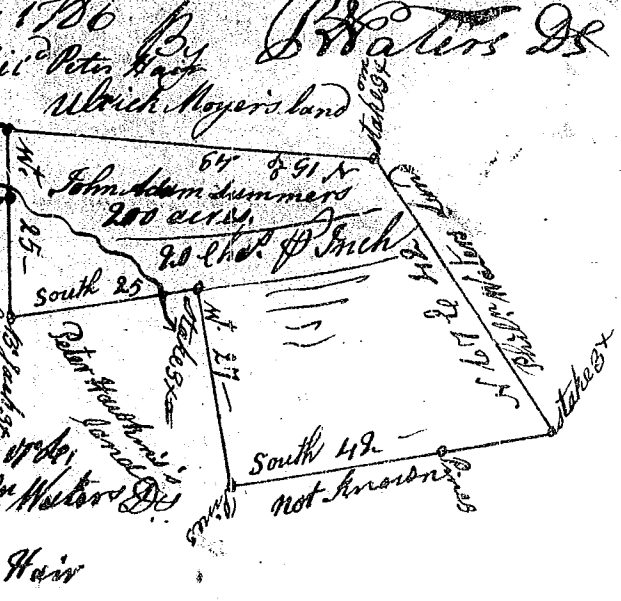 1786 By P Waters DS
Peter Hair
Ulrich Moyer's land
stake 3x
N 15 E 49
Wt 25
John Adam Summers
200 acres.
20 Chs. P Inch
South 25
stake 3x
Wt 27
Peter Hawkins's
land
Phil. Waters Land
stake 3x
South 42
not Known
Pines
Pines
Waters DS
Hair